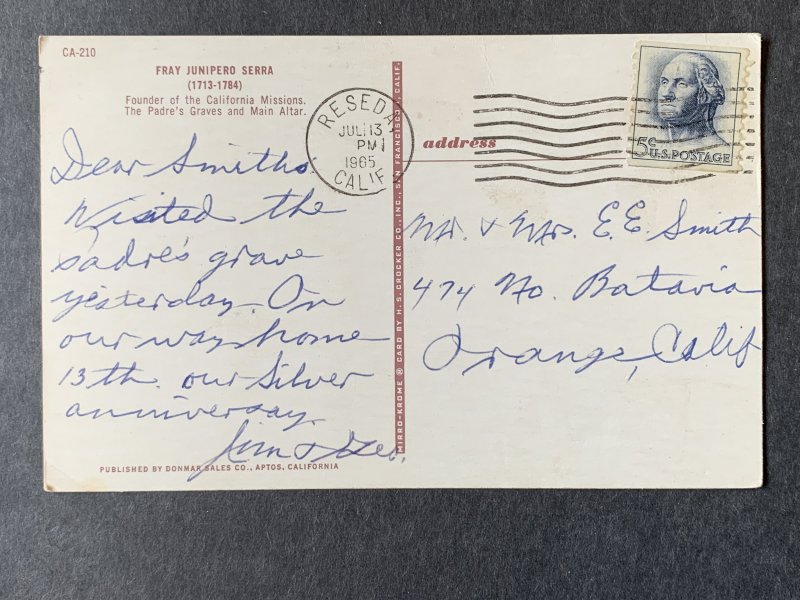 CA-210
FRAY JUNIPERO SERRA
(1713-1784)
Founder of the California Missions.
The Padre's Graves and Main Altar.
Dear Smiths
Visited the
padre's grave
yesterday. On
our way home
13th. our Silver
anniversay.
Jim & Geo.
PUBLISHED BY DONMAR SALES CO., APTOS, CALIFORNIA
MIRRO-KROME ® CARD BY H. S. CROCKER CO., INC., SAN FRANCISCO 1, CALIF.
RESEDA
JUL 13
PM
1965
CALIF
address
5c
U.S. POSTAGE
Mr. & Mrs. E.E. Smith
474 No. Batavia
Orange, Calif